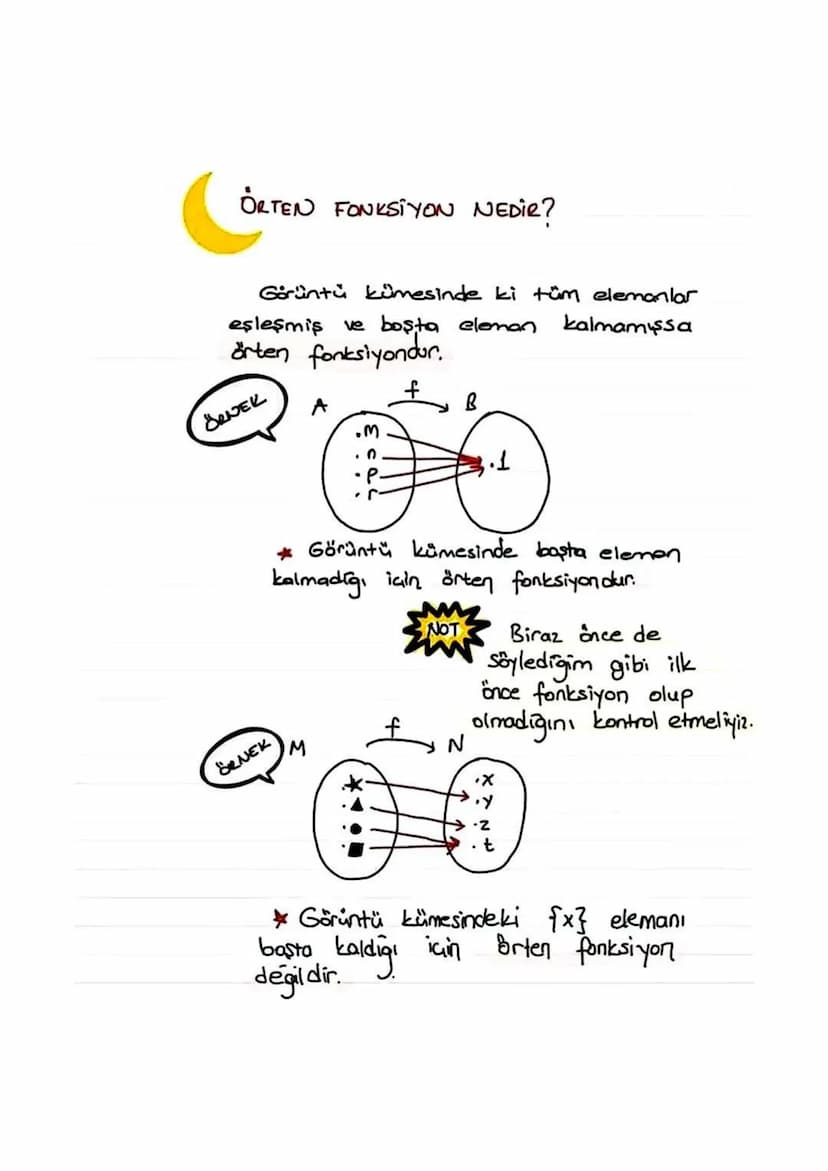 ÖRTEN FONKSİYON NEDİR?
Görüntü kümesinde ki tüm elemanlar
eşleşmiş ve boşta eleman kalmamışsa
örten fonksiyondur.
ÖRNEK
A
f
B
.m
.n
.p
.r
.1
Görüntü kümesinde boşta eleman
kalmadığı için örten fonksiyondur.
NOT
Biraz önce de
söylediğim gibi ilk
önce fonksiyon olup
olmadığını kontrol etmeliyiz.
ÖRNEK
M
f
N
.x
.y
.z
.t
Görüntü kümesindeki {x} elemanı
boşta kaldığı için örten fonksiyon
değildir.